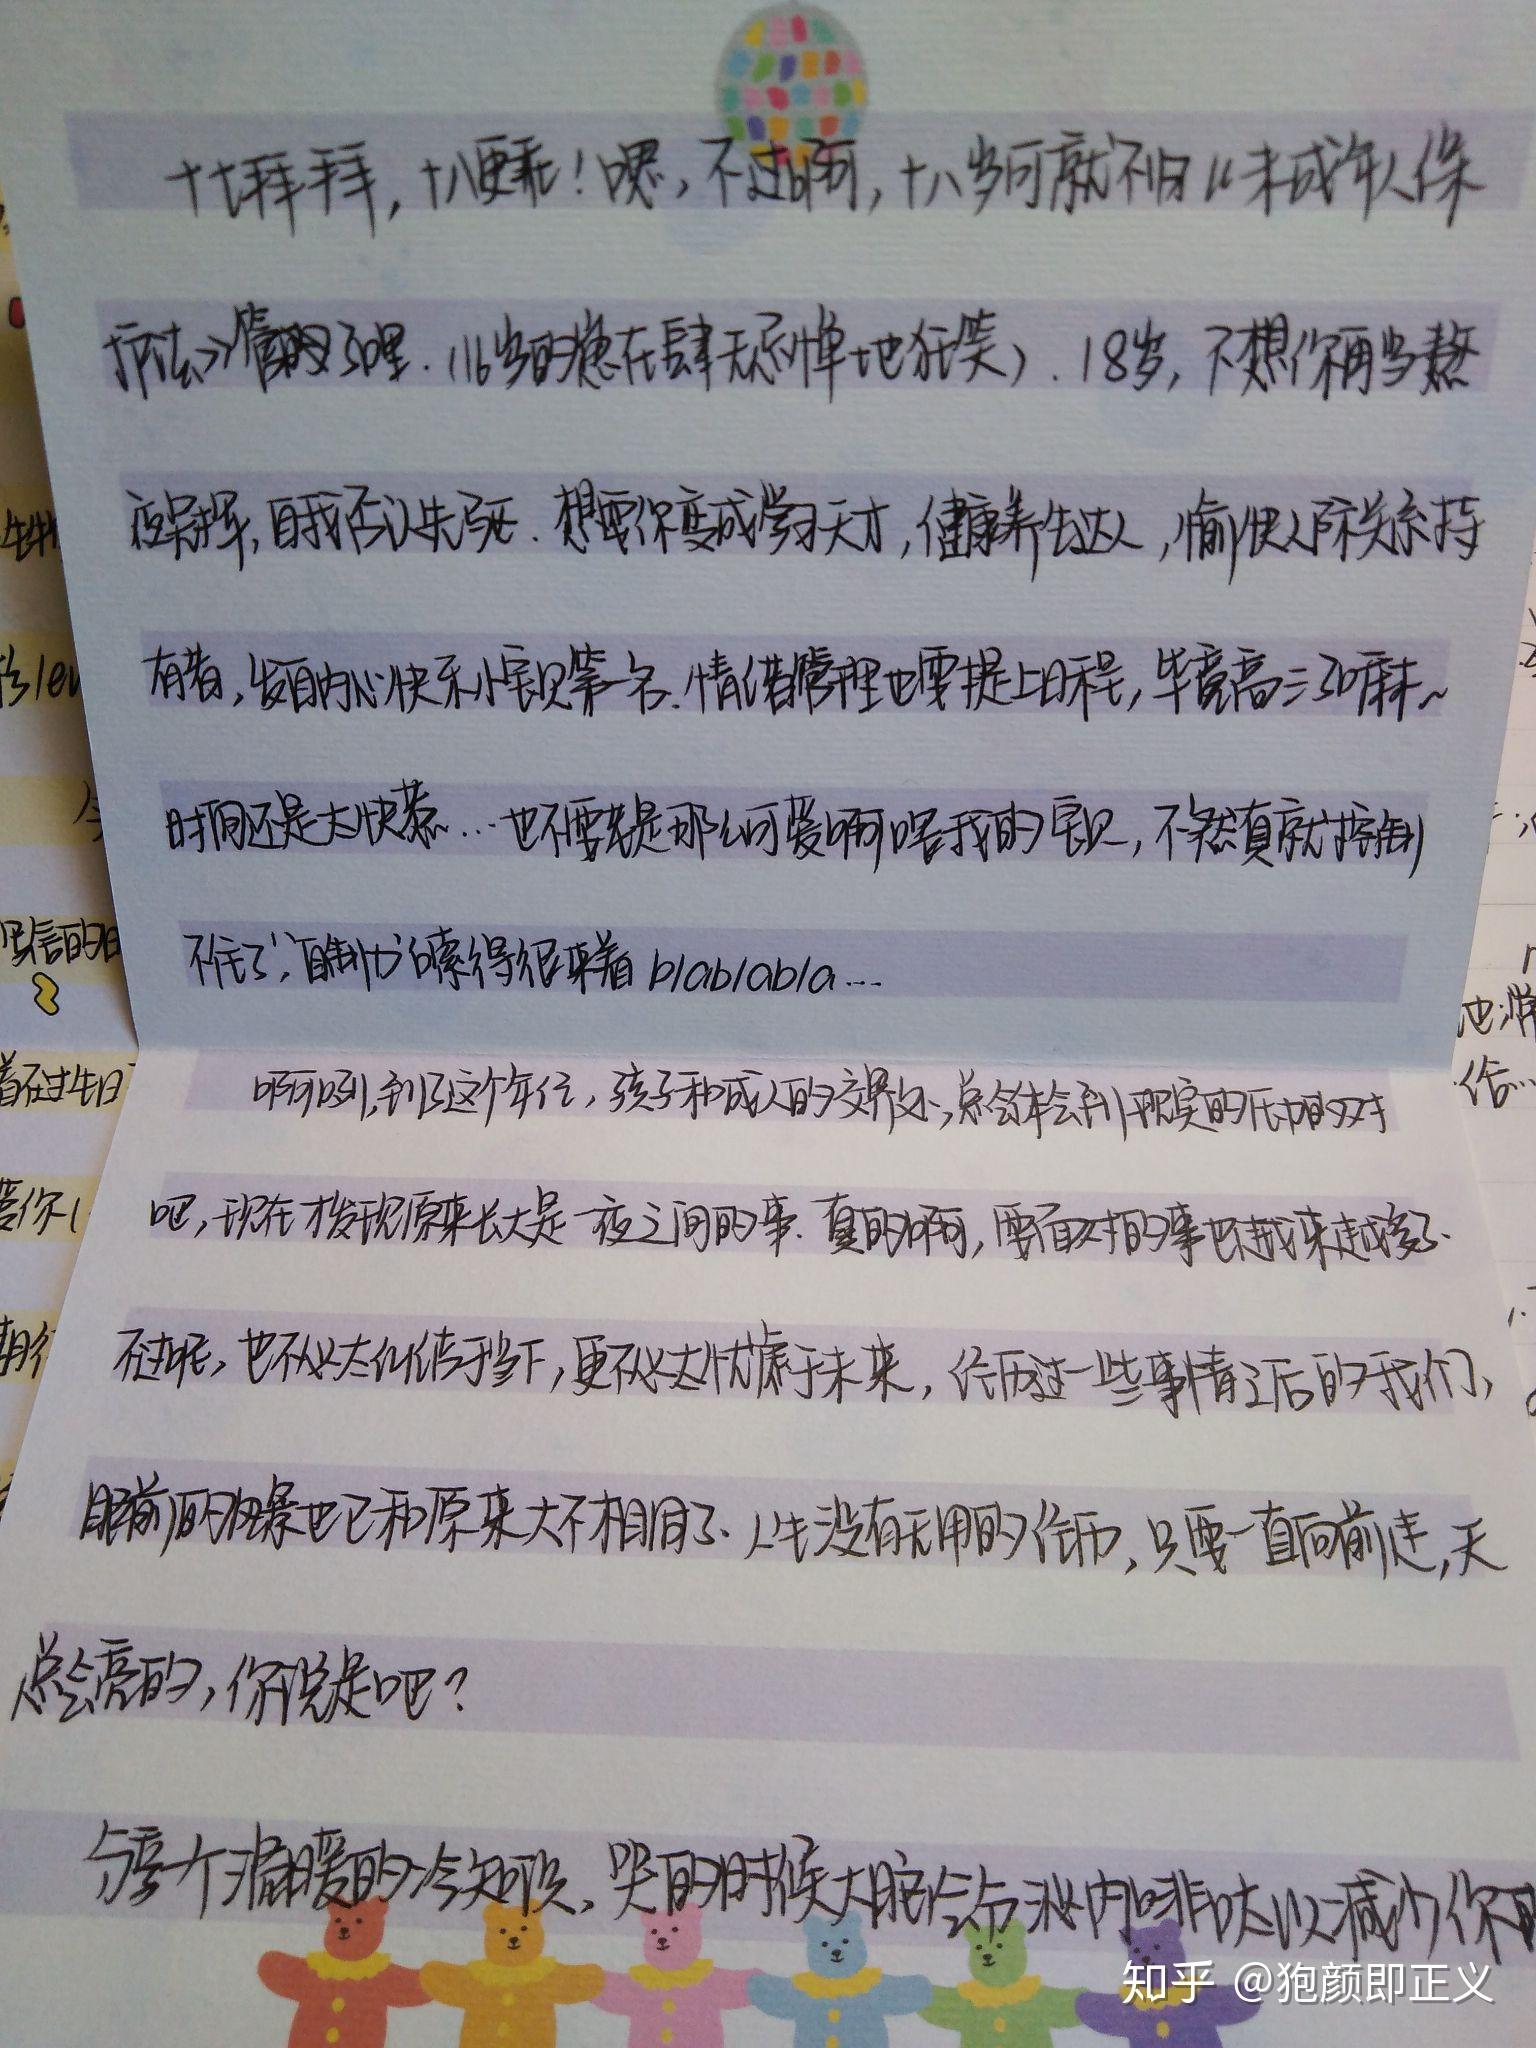 十七拜拜，十八更乖！嗯，不过啊，十八岁可就不归《未成年人保
护法》管的了哩.（16岁的 在肆无忌惮地狂笑）.18岁，不想你再当熬
夜冠军，自我否认先锋.想要你变成学习天才，健康养生达人，愉快人际关系持
有者，发自内心快乐小宝贝第一名.情绪管理也要提上日程，毕竟高三了嘛~
时间还是太快惹...也不要老是那么可爱啊喂我的宝贝，不然真就控制
不住了，“自制力”嗦得很来着blablabla...
啊哟,到了这个年位，孩子和成人的交界处，总会体会到现实的压力的对
吧，现在才发现原来长大是一夜之间的事.真的啊，要面对的事也越来越多了.
不过呢，也不必太纠结于当下，更不必太忧虑于未来，经历过一些事情之后的我们，
眼前的风景也已和原来大不相同了.人生没有无用的经历，只要一直向前走，天
总会亮的，你说是吧？
分享一个温暖的冷知识、哭的时候大脑会分泌内啡肽以减少你的
牛牛
写信的日
着在过生日
爱你
知乎 @狍颜即正义